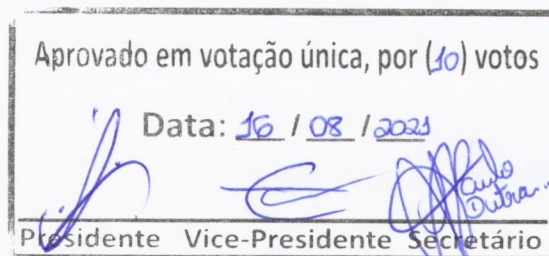 Aprovado em votação única, por (10) votos
Data: 16 / 08 / 2021
Paulo
Dutra...
Presidente Vice-Presidente Secretário